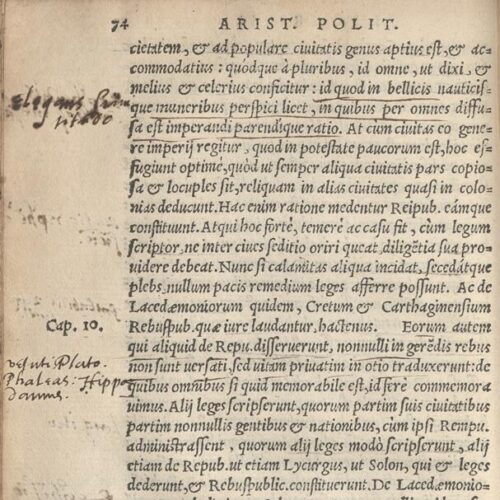 74 ARIST. POLIT.
cietatem, & ad populare ciuitatis genus aptius est, & ac-
commodatius: quodque à pluribus, id omne, ut dixi, &
melius & celerius conficitur: id quod in bellicis nauticis-
que muneribus perspici licet, in quibus per omnes diffu-
sa est imperandi parendique ratio. At cum ciuitas eo gene-
re imperij regitur, quod in potestate paucorum est, hoc ef-
fugiunt optimè, quòd ut semper aliqua ciuitatis pars copio-
sa & locuples sit, reliquam in alias ciuitates quasi in colo-
nias deducunt. Hac enim ratione medentur Reipub. eámque
constituunt. Atqui hoc fortè, temerè ac casu fit, cum legum
scriptor, ne inter ciues seditio oriri queat, diligẽtia sua pro-
uidere debeat. Nunc si calamitas aliqua incidat, secedátque
plebs, nullum pacis remedium leges afferre possunt. Ac de
Lacedæmoniorum quidem, Cretum & Carthaginensium
Rebuspub. quæ iure laudantur, hactenus. Eorum autem
qui aliquid de Repu. disseruerunt, nonnulli in gerẽdis rebus
non sunt uersati, sed uitam priuatim in otio traduxerunt: de
quibus omnibus si quid memorabile est, id ferè commemora
uimus. Alij leges scripserunt, quorum partim suis ciuitatibus
partim nonnullis gentibus & nationibus, cum ipsi Rempu.
administrassent, quorum alij leges modò scripserunt, alij
etiam de Repub. ut etiam Lycurgus, ut Solon, qui & leges
dederunt, & Rebuspublic. constituerunt. De Lacedæmonio-
Elegans
Cap. 10.
veluti Plato
Phaleas. Hippo
damus.